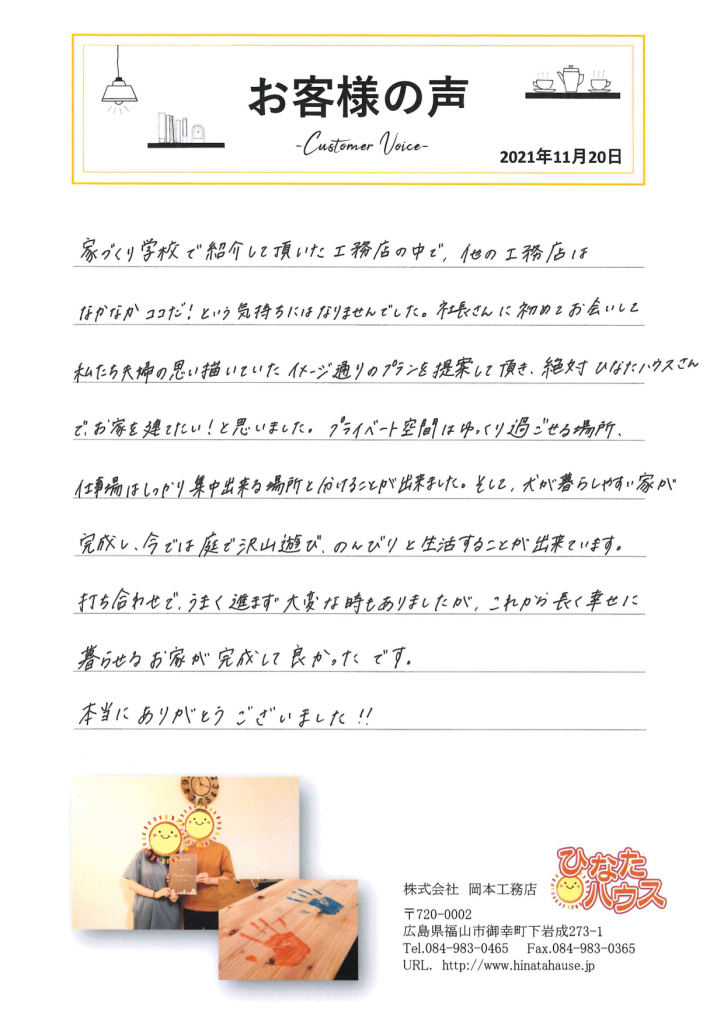 お客様の声
-Customer Voice-
2021年11月20日
家づくり学校で紹介して頂いた工務店の中で、他の工務店は
なかなかココだ!という気持ちにはなりませんでした。社長さんに初めてお会いして
私たち夫婦の思い描いていたイメージ通りのプランを提案して頂き、絶対ひなたハウスさん
で、お家を建てたい!と思いました。プライベート空間はゆっくり過ごせる場所、
仕事場はしっかり集中出来る場所と分けることが出来ました。そして、犬が暮らしやすい家が
完成し、今では庭で沢山遊び、のんびりと生活することが出来ています。
打ち合わせで、うまく進まず大変な時もありましたが、これから長く幸せに
暮らせるお家が完成して良かったです。
本当にありがとうございました!!
ひなた
ハウス
株式会社 岡本工務店
〒720-0002
広島県福山市御幸町下岩成273-1
Tel.084-983-0465 Fax.084-983-0365
URL. http://www.hinatahause.jp